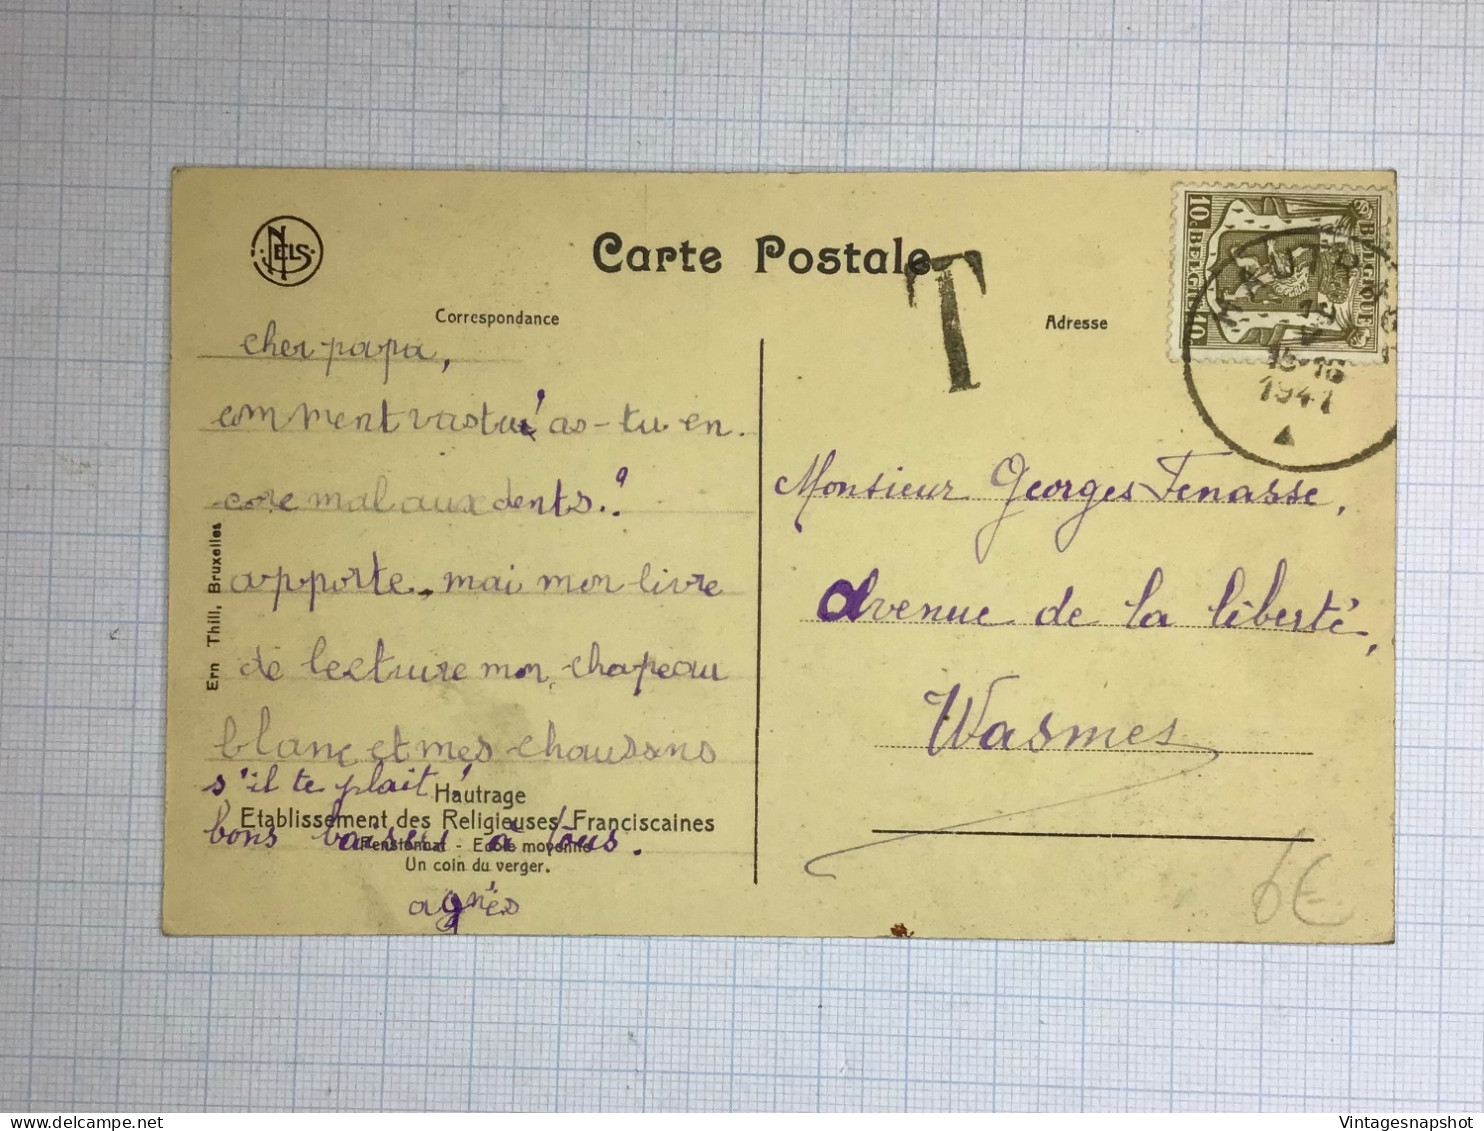 NELS
Carte Postale
T
Correspondance
Adresse
10c BELGIE 10c
BELGIQUE
15-16
1941
cher papa,
comment vas tu as-tu en.
core mal aux dents.?
apporte-mai mon livre
de lecture mon chapeau
blanc et mes chaussons
s'il te plait!
bons baisers à tous.
agnès
Hautrage
Etablissement des Religieuses Franciscaines
Pensionnat - Ecole moyenne
Un coin du verger.
Ern Thill, Bruxelles
Monsieur Georges Fenasse,
Avenue de la liberté,
Wasmes
6€
Vintagesnapshot